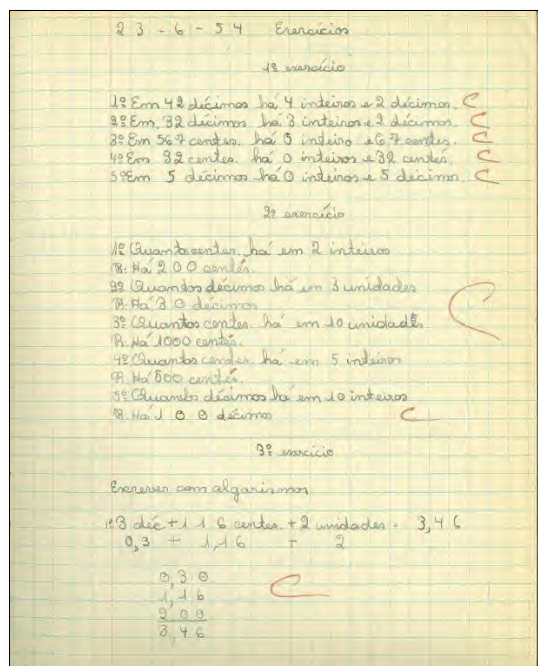 23-6-54 Exercícios
1º exercício
1º Em 42 décimos há 4 inteiros e 2 décimos. C
2º Em 32 décimos há 3 inteiros e 2 décimos. C
3º Em 567 centes. há 5 inteiro e 67 centes. C
4º Em 32 centes. há 0 inteiros e 32 centes. C
5º Em 5 décimos há 0 inteiros e 5 décimos C
2º exercício
1º Quanto centes. há em 2 inteiros
R: Há 200 centés.
2º Quantos décimos há em 3 unidades
R. Há 30 décimos
3º Quantos centes. há em 10 unidades
R: Há 1000 centés.
4º Quantos centes. há em 5 inteiros
R. Há 500 centés.
5º Quantos décimos há em 10 inteiros
R: Há 100 décimos C
3º exercício
Escrever com algarismos
1º 3 déc. + 116 centes. + 2 unidades = 3,46
0,3 + 1,16 + 2
0,30
1,16
200
3,46
C